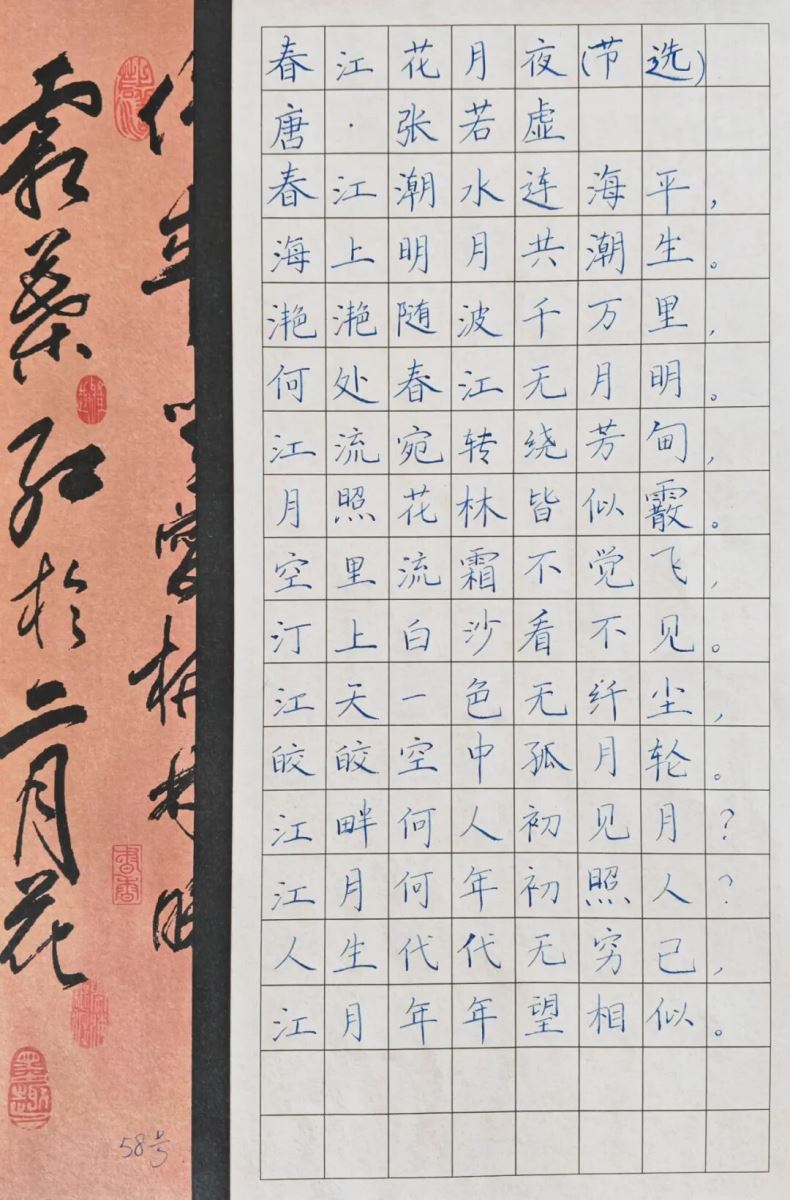 春江花月夜(节选)
唐·张若虚
春江潮水连海平，
海上明月共潮生。
滟滟随波千万里，
何处春江无月明。
江流宛转绕芳甸，
月照花林皆似霰。
空里流霜不觉飞，
汀上白沙看不见。
江天一色无纤尘，
皎皎空中孤月轮。
江畔何人初见月？
江月何年初照人？
人生代代无穷已，
江月年年望相似。
爱枫林晚
霜叶红于二月花
58号